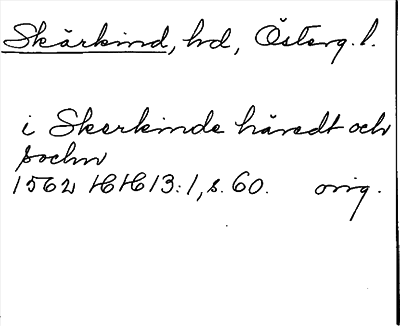 Skärkind, hd, Österg. l.
i Skerkinde häredt och
sochn
1562 HH 13:1, s. 60. orig.